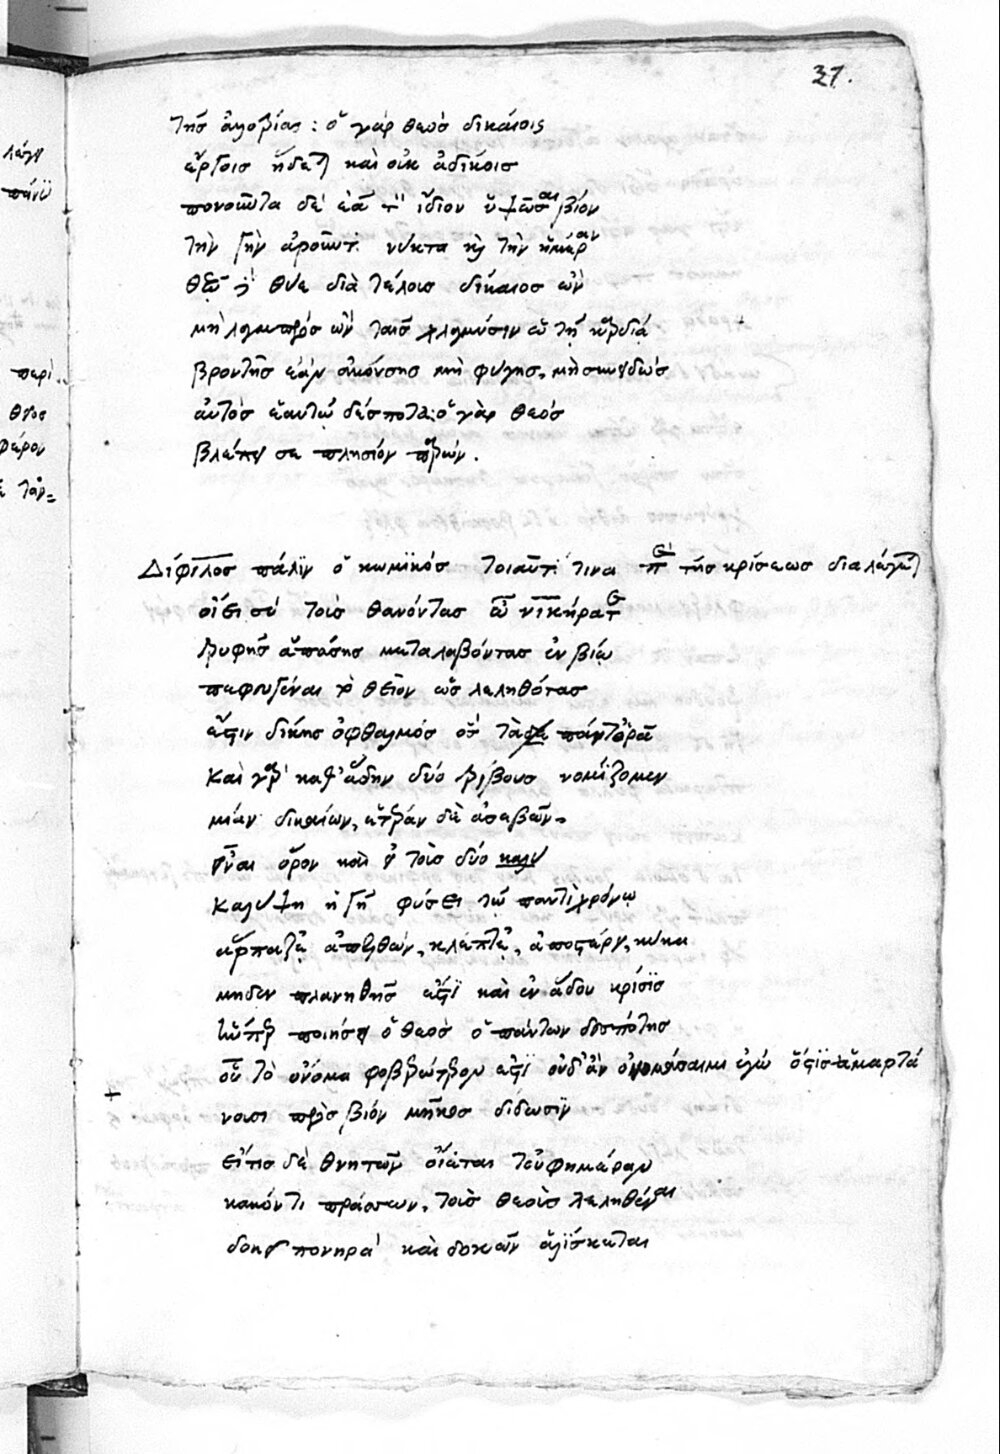 37.
τῆς ἀλοβίας : ὁ γὰρ θεὸσ δικαίοις
ἔργοισ ἥδεται καὶ οὐκ ἀδίκοισ
πονοῦντα δὲ ἐᾶ τὸν ἴδιον ὑψῶσαι βίον
τὴν γῆν ἀροῦντα νύκτα καὶ τὴν ἡμέραν
θεῷ δὲ θύε διὰ τέλουσ δίκαιοσ ὢν
μὴ λαμπρόσ ὢν ταῖσ χλαμύσιν ὡ τῇ καρδίᾳ
βροντῆσ ἐὰν ἀκούσησ μὴ φύγησ,
αὐτὸσ ἑαυτῷ δέσποτα: ὁ γὰρ θεόσ
βλέπει σε πλησίον παρών.
Δίφιλοσ πάλιν ὁ κωμικόσ τοιαῦτά τινα περὶ τῆσ κρίσεωσ διαλέγεται
οἴει σύ τοὺσ θανόντασ ὦ νικήρατε
τρυφῆσ ἁπάσησ μεταλαβόντασ ἐν βίῳ
πεφευγέναι τὸ θεῖον ὡσ λεληθότασ
ἔστιν δίκησ ὀφθαλμόσ ὃσ τὰ πάντα ὁρᾶ
καὶ γὰρ καθ' ᾅδην δύο τρίβουσ νομίζομεν
μίαν δικαίων, ἑτέραν δὲ ἀσεβῶν.
εἶναι ὅρον καὶ εἰ τοὺσ δύο καλυ
καλύψη ἡ γῆ φύσει τῷ παντὶ χρόνω
ἅρπαζε ἀπελθὼν, κλέπτε, ἀποστέρει, κύκα
μηδὲν πλανηθῆσ ἔστι καὶ ἐν ᾅδου κρίσισ
ἥνπερ ποιήσει ὁ θεὸσ ὁ πάντων δεσπότησ
οὗ τὸ ὄνομα φοβερώτερον ἐστὶ οὐδ' ἂν ὀνομάσαιμι ἐγώ ὅστισ ἁμαρτά
νουσι πρὸσ βίον μῆκοσ δίδωσιν
εἴ τισ δὲ θνητῶν οἴεται τοὐφημέραν
κακόν τι πράσσων, τοὺσ θεοὺσ λεληθέναι
δοκεῖ πονηρὰ καὶ δοκῶν ἁλίσκεται